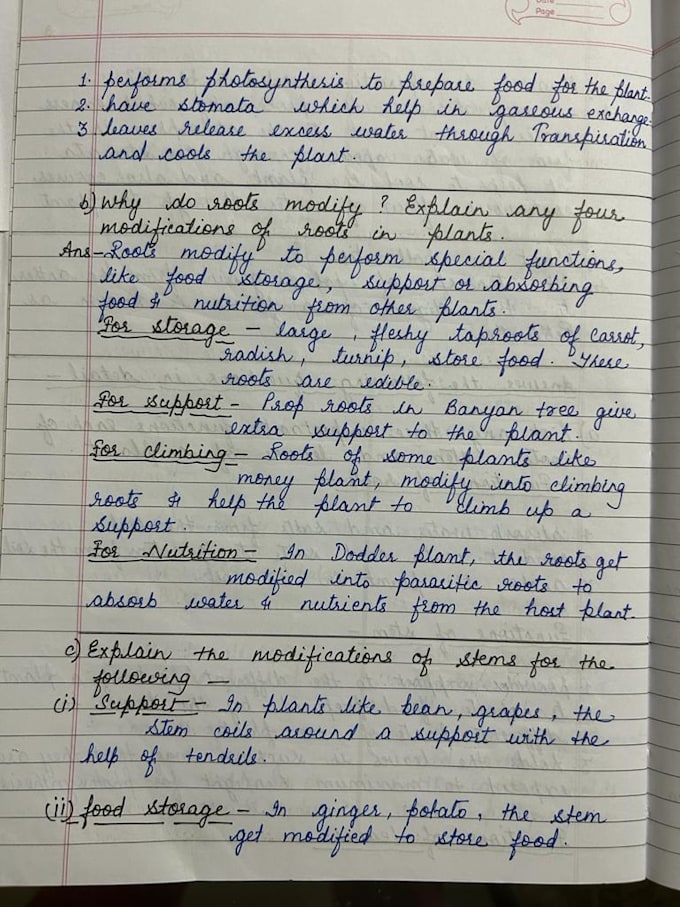 Page
1. performs photosynthesis to prepare food for the plant.
2. have stomata which help in gaseous exchange.
3 leaves release excess water through Transpiration
and cools the plant.
b) Why do roots modify ? Explain any four
modifications of roots in plants.
Ans - Roots modify to perform special functions,
like food storage, support or absorbing
food & nutrition from other plants.
For storage - large, fleshy taproots of carrot,
radish, turnip, store food. These
roots are edible.
For support - Prop roots in Banyan tree give
extra support to the plant.
For climbing - Roots of some plants like
money plant, modify into climbing
roots & help the plant to climb up a
support.
For Nutrition - In Dodder plant, the roots get
modified into parasitic roots to
absorb water & nutrients from the host plant.
c) Explain the modifications of stems for the
following —
(i) Support - In plants like bean, grapes, the
stem coils around a support with the
help of tendrils.
(ii) food storage - In ginger, potato, the stem
get modified to store food.